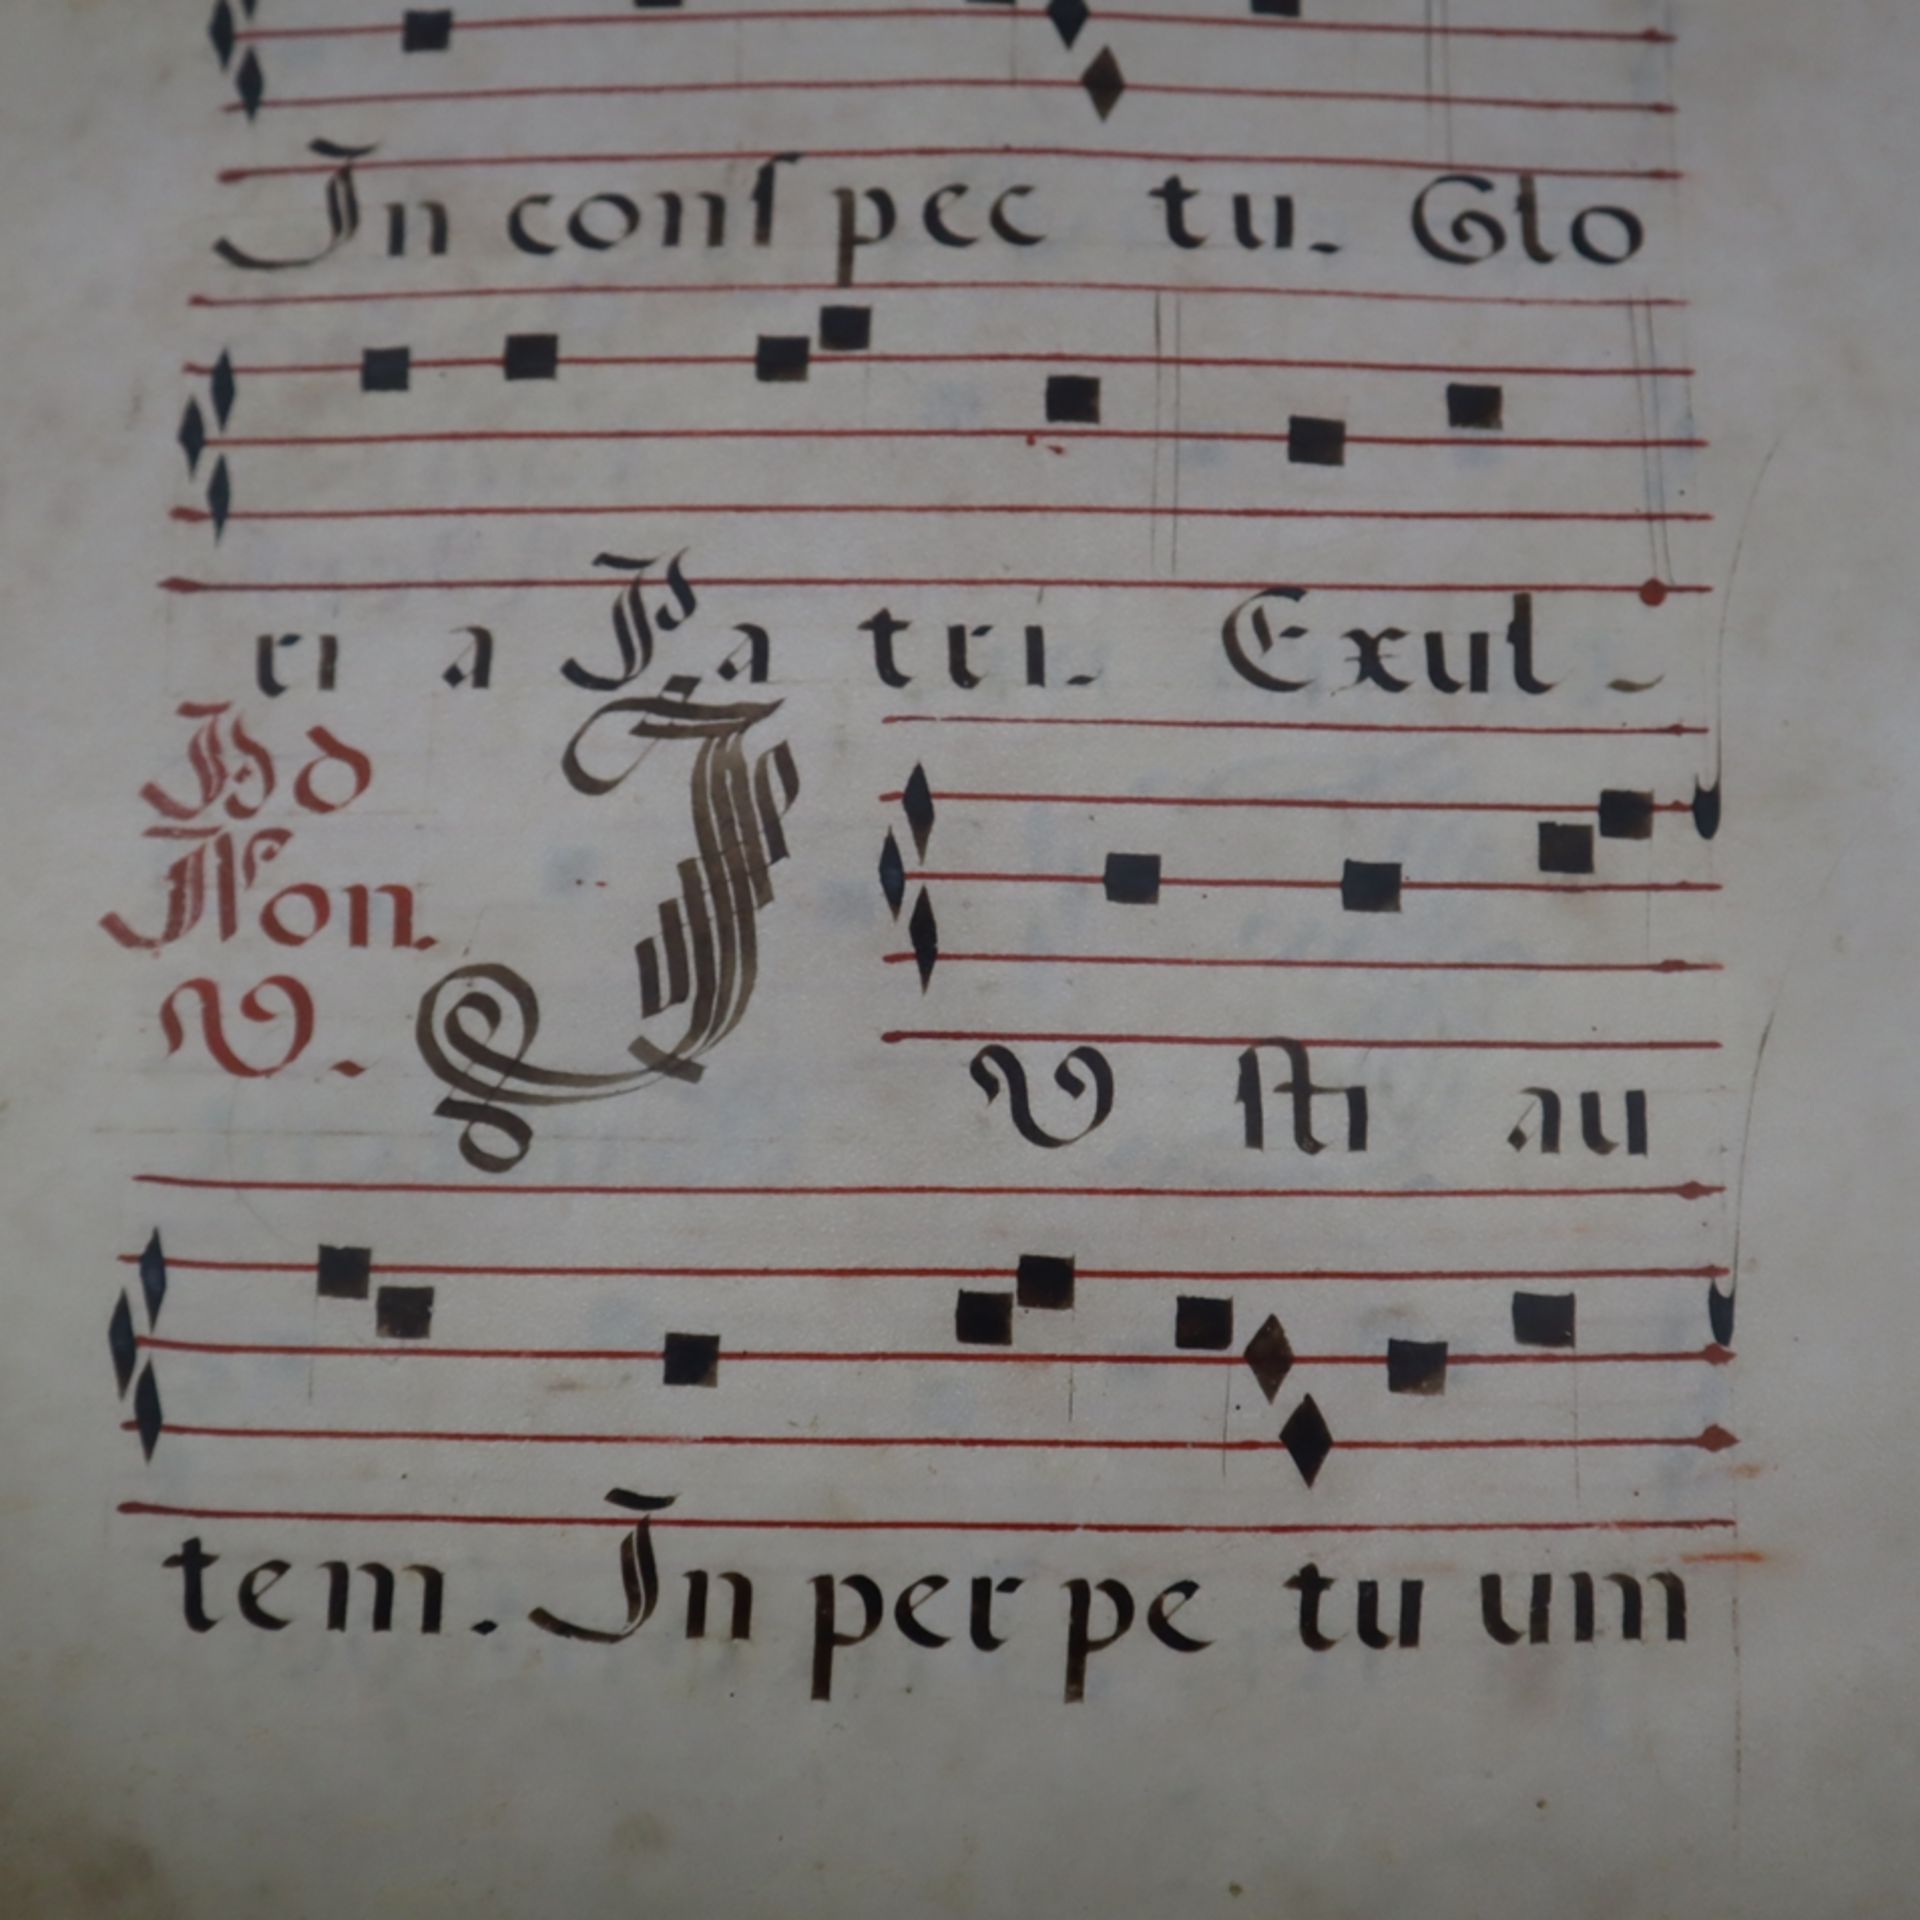 In conſpec tu. Glo
ri a Pa tri. Exul-
Ad
Non.
V.
I
V ſti au
tem. In perpe tu um